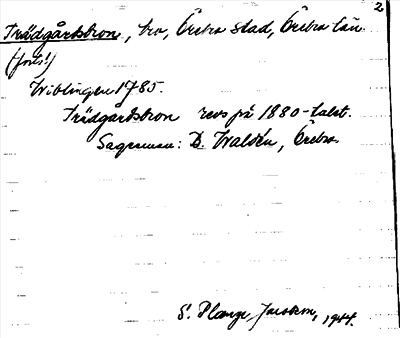 2
Trädgårdsbron, bro, Örebro stad, Örebro län.
(förs!)
Wiblingen 1785.
Trädgårdsbron revs på 1880-talet.
Sagesman: D. Waldén, Örebro.
S. Plange Jacobson, 1944.